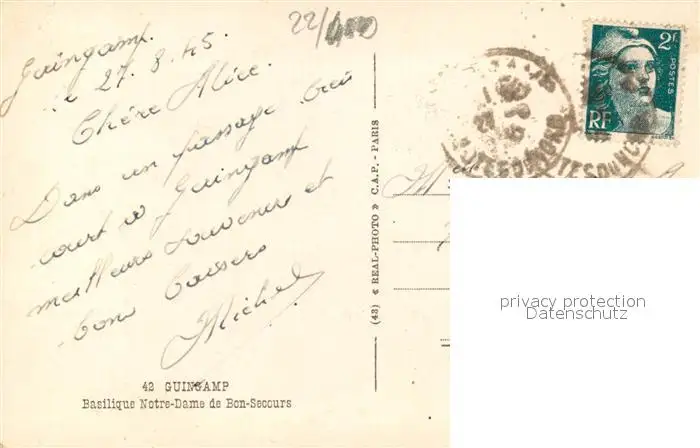 22/400
Guingamp.
le 27.8.45.
Chère Alice.
Dans un passage très
court à Guingamp
meilleurs souvenirs et
bons baisers
Michel
42 GUINGAMP
Basilique Notre-Dame de Bon-Secours
(43) « REAL-PHOTO » C.A.P. - PARIS
2F
POSTES
RF
COTES DU NORD
Mell
privacy protection
Datenschutz